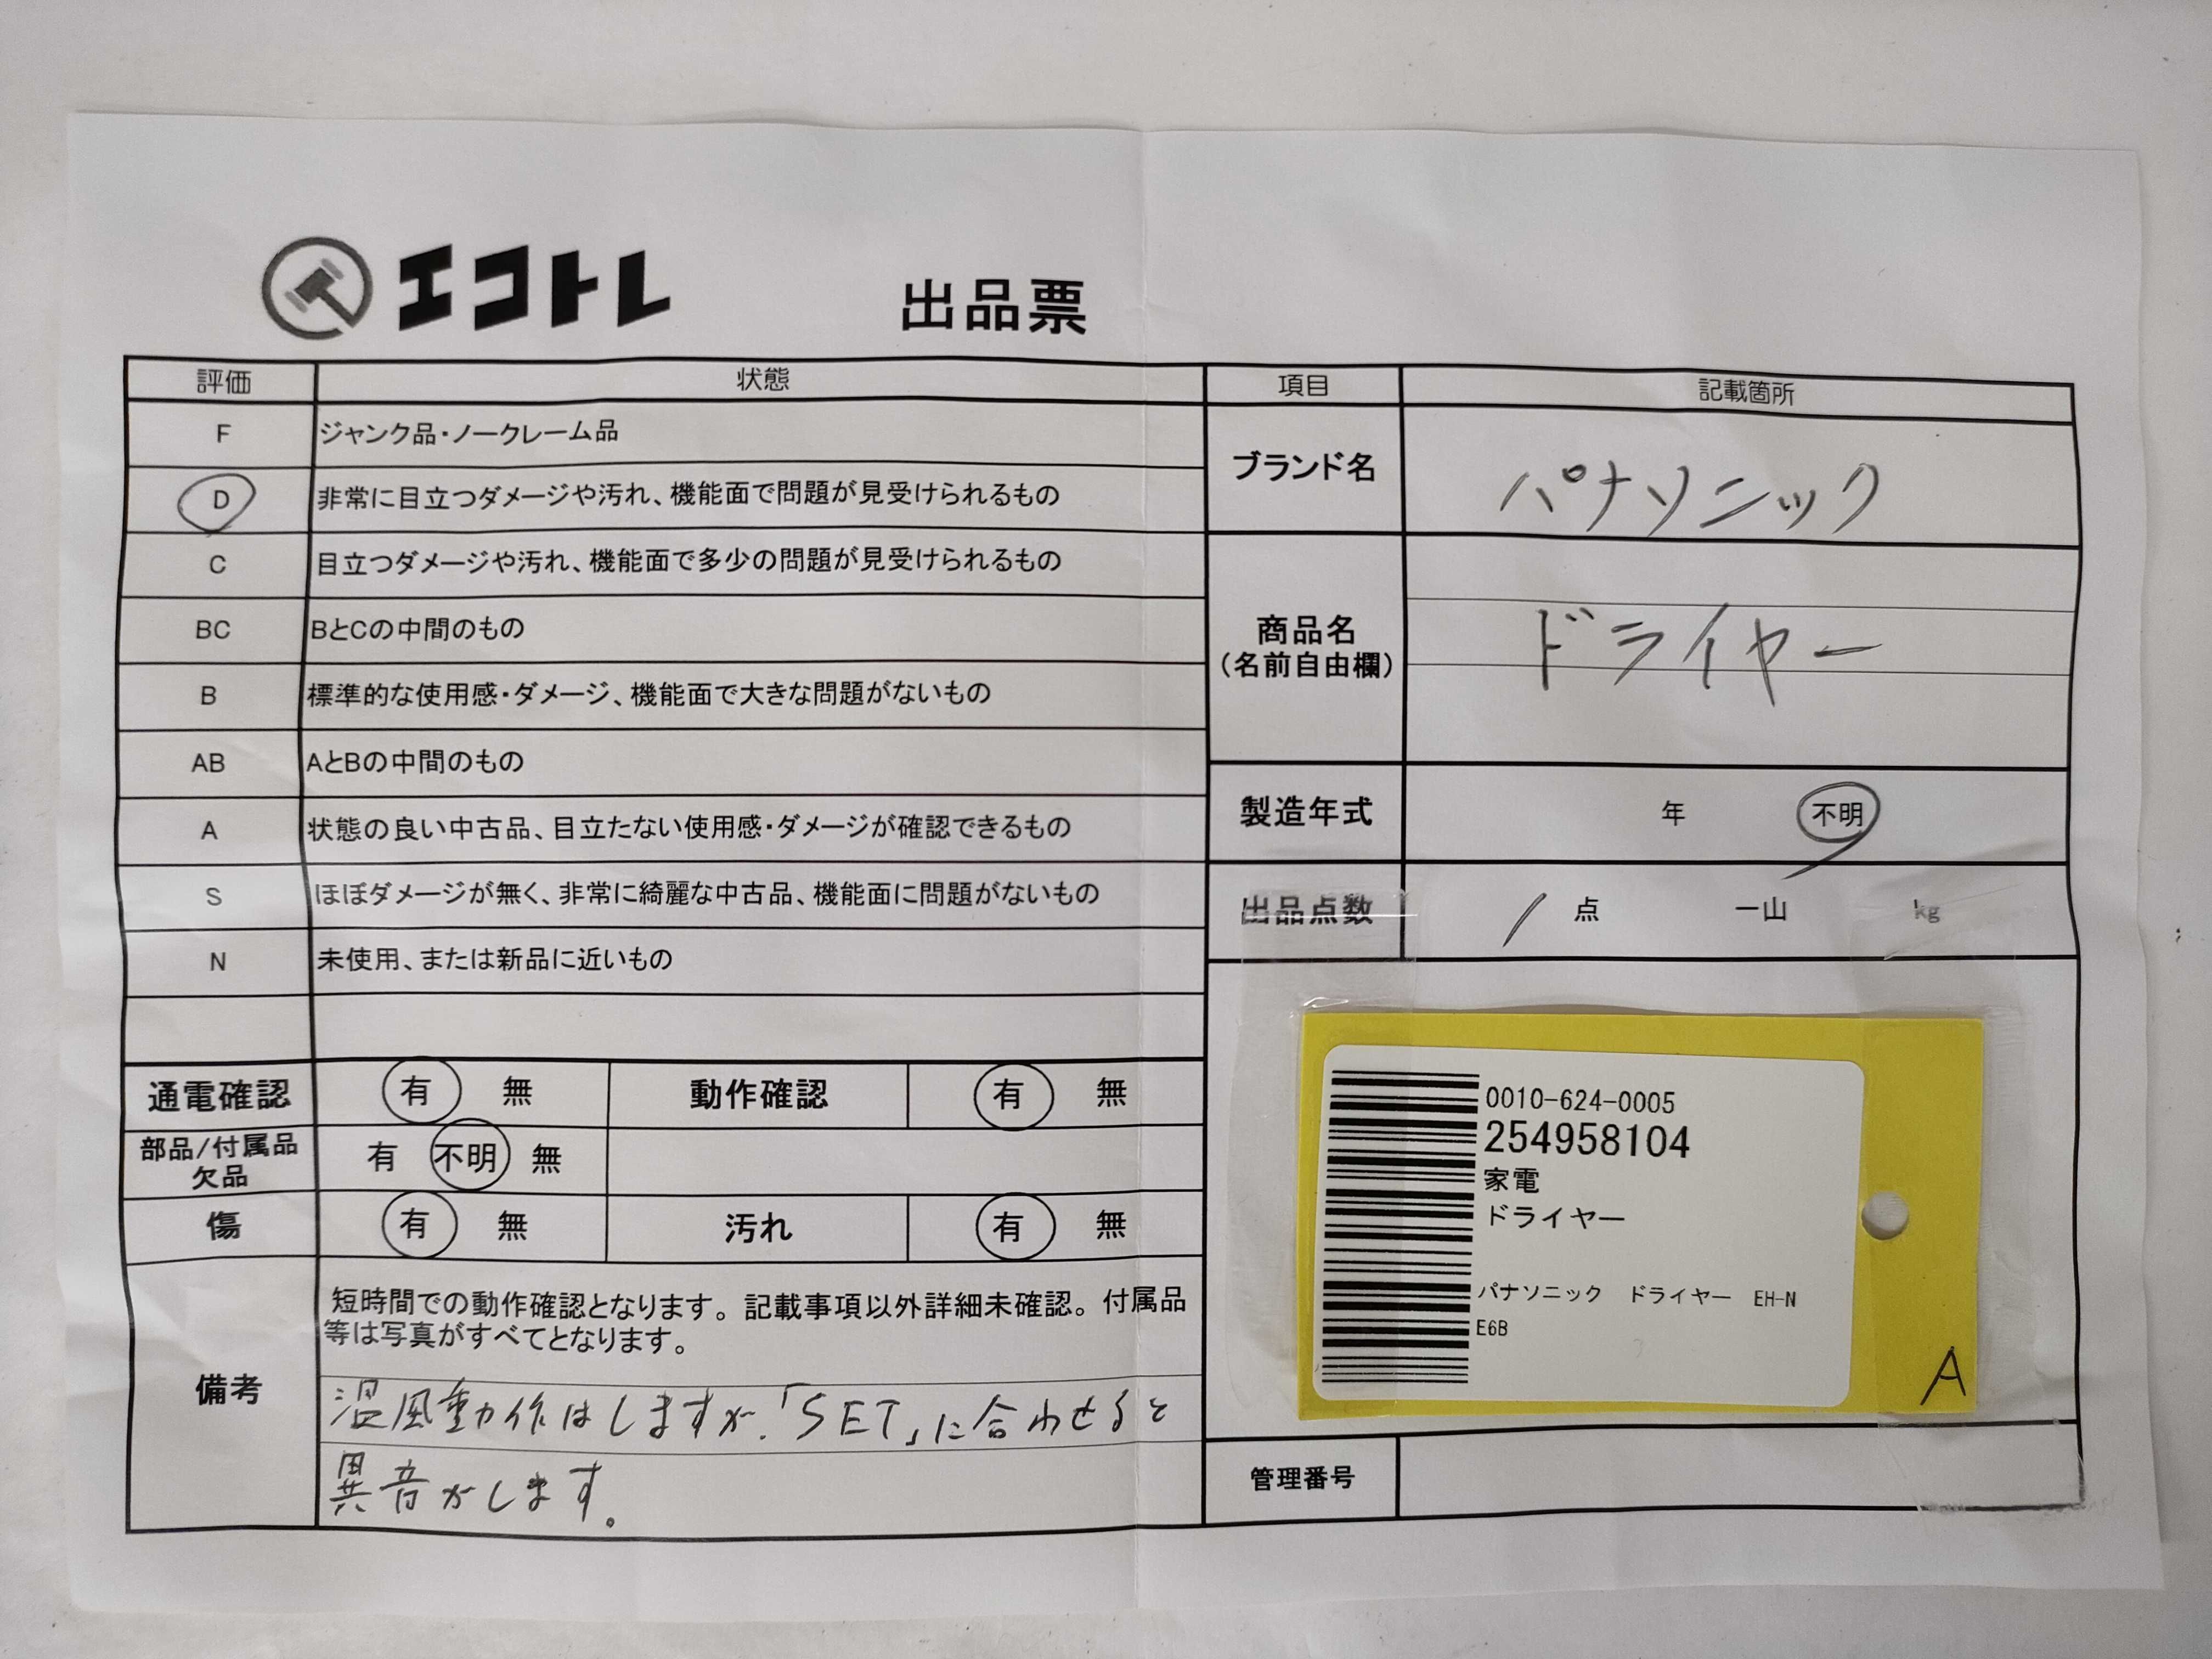 エコトレ
出品票
評価 状態
F ジャンク品・ノークレーム品
D 非常に目立つダメージや汚れ、機能面で問題が見受けられるもの
C 目立つダメージや汚れ、機能面で多少の問題が見受けられるもの
BC BとCの中間のもの
B 標準的な使用感・ダメージ、機能面で大きな問題がないもの
AB AとBの中間のもの
A 状態の良い中古品、目立たない使用感・ダメージが確認できるもの
S ほぼダメージが無く、非常に綺麗な中古品、機能面に問題がないもの
N 未使用、または新品に近いもの
通電確認 有 無 動作確認 有 無
部品/付属品
欠品
有 不明 無
傷 有 無 汚れ 有 無
備考
短時間での動作確認となります。記載事項以外詳細未確認。付属品
等は写真がすべてとなります。
温風動作はしますが、「SET」に合わせると
異音がします。
項目 記載箇所
ブランド名 パナソニック
商品名
(名前自由欄)
ドライヤー
製造年式 年 不明
出品点数 1 点 一山 kg
0010-624-0005
254958104
家電
ドライヤー
パナソニック ドライヤー EH-N
E6B
A
管理番号